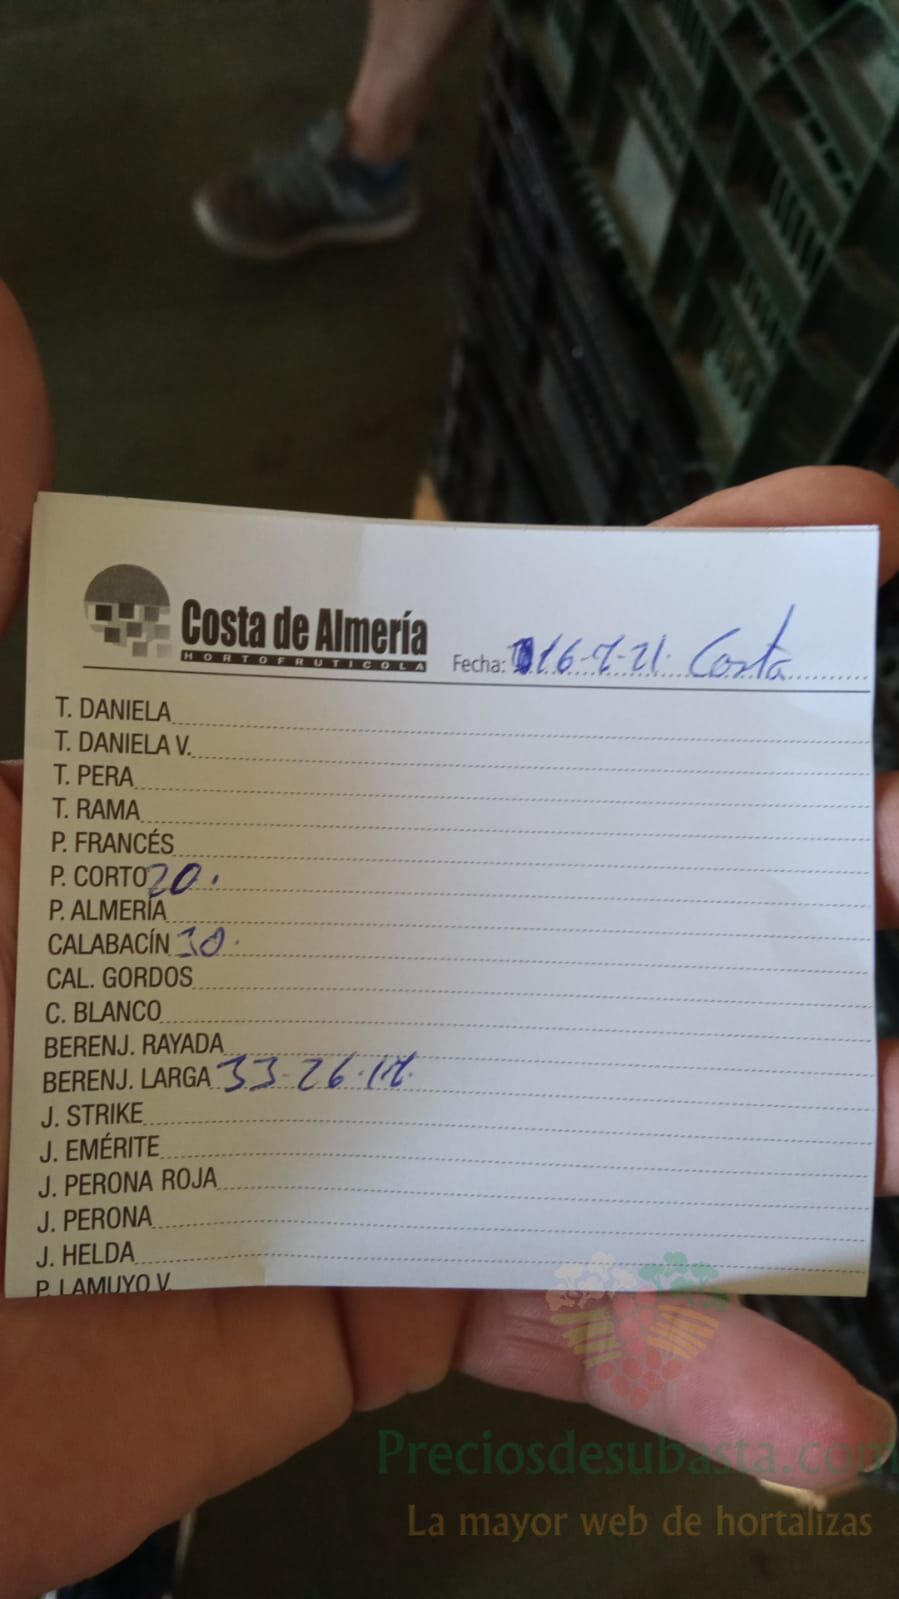 Costa de Almería
HORTOFRUTICOLA
Fecha: 16-7-21. Costa
T. DANIELA
T. DANIELA V.
T. PERA
T. RAMA
P. FRANCÉS
P. CORTO 20.
P. ALMERÍA
CALABACÍN 30.
CAL. GORDOS
C. BLANCO
BERENJ. RAYADA
BERENJ. LARGA 33-26-17.
J. STRIKE
J. EMÉRITE
J. PERONA ROJA
J. PERONA
J. HELDA
P. LAMUYO V.
Preciosdesubasta.com
La mayor web de hortalizas